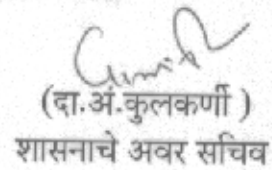 (दा.अं.कुलकर्णी )
शासनाचे अवर सचिव